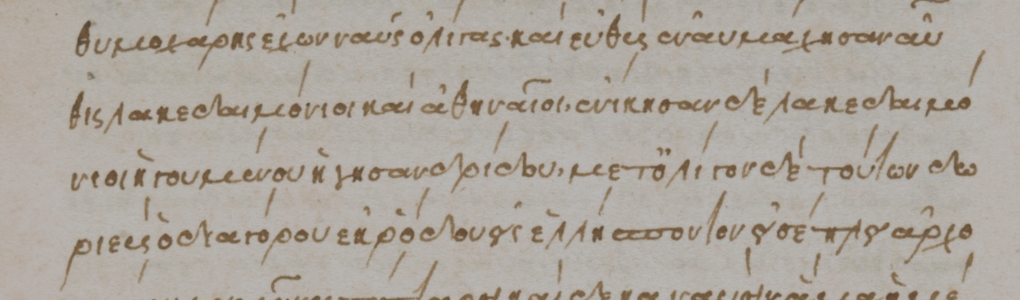 θυμοχάρης ἔχων ναῦς ὀλίγας· καὶ εὐθὺς ἐναυμάχησαν αὖ
θις λακεδαιμόνιοι καὶ ἀθηναῖοι, ἐνίκησαν δὲ λακεδαιμό
νιοι ἡγουμένου ἡγησανδρίδου, μετ' ὀλίγον δὲ τούτων δω
ριεὺς ὁ διαγόρου ἐκ ῥόδου εἰς ἑλλήσποντον εἰσέπλει ἀρχο